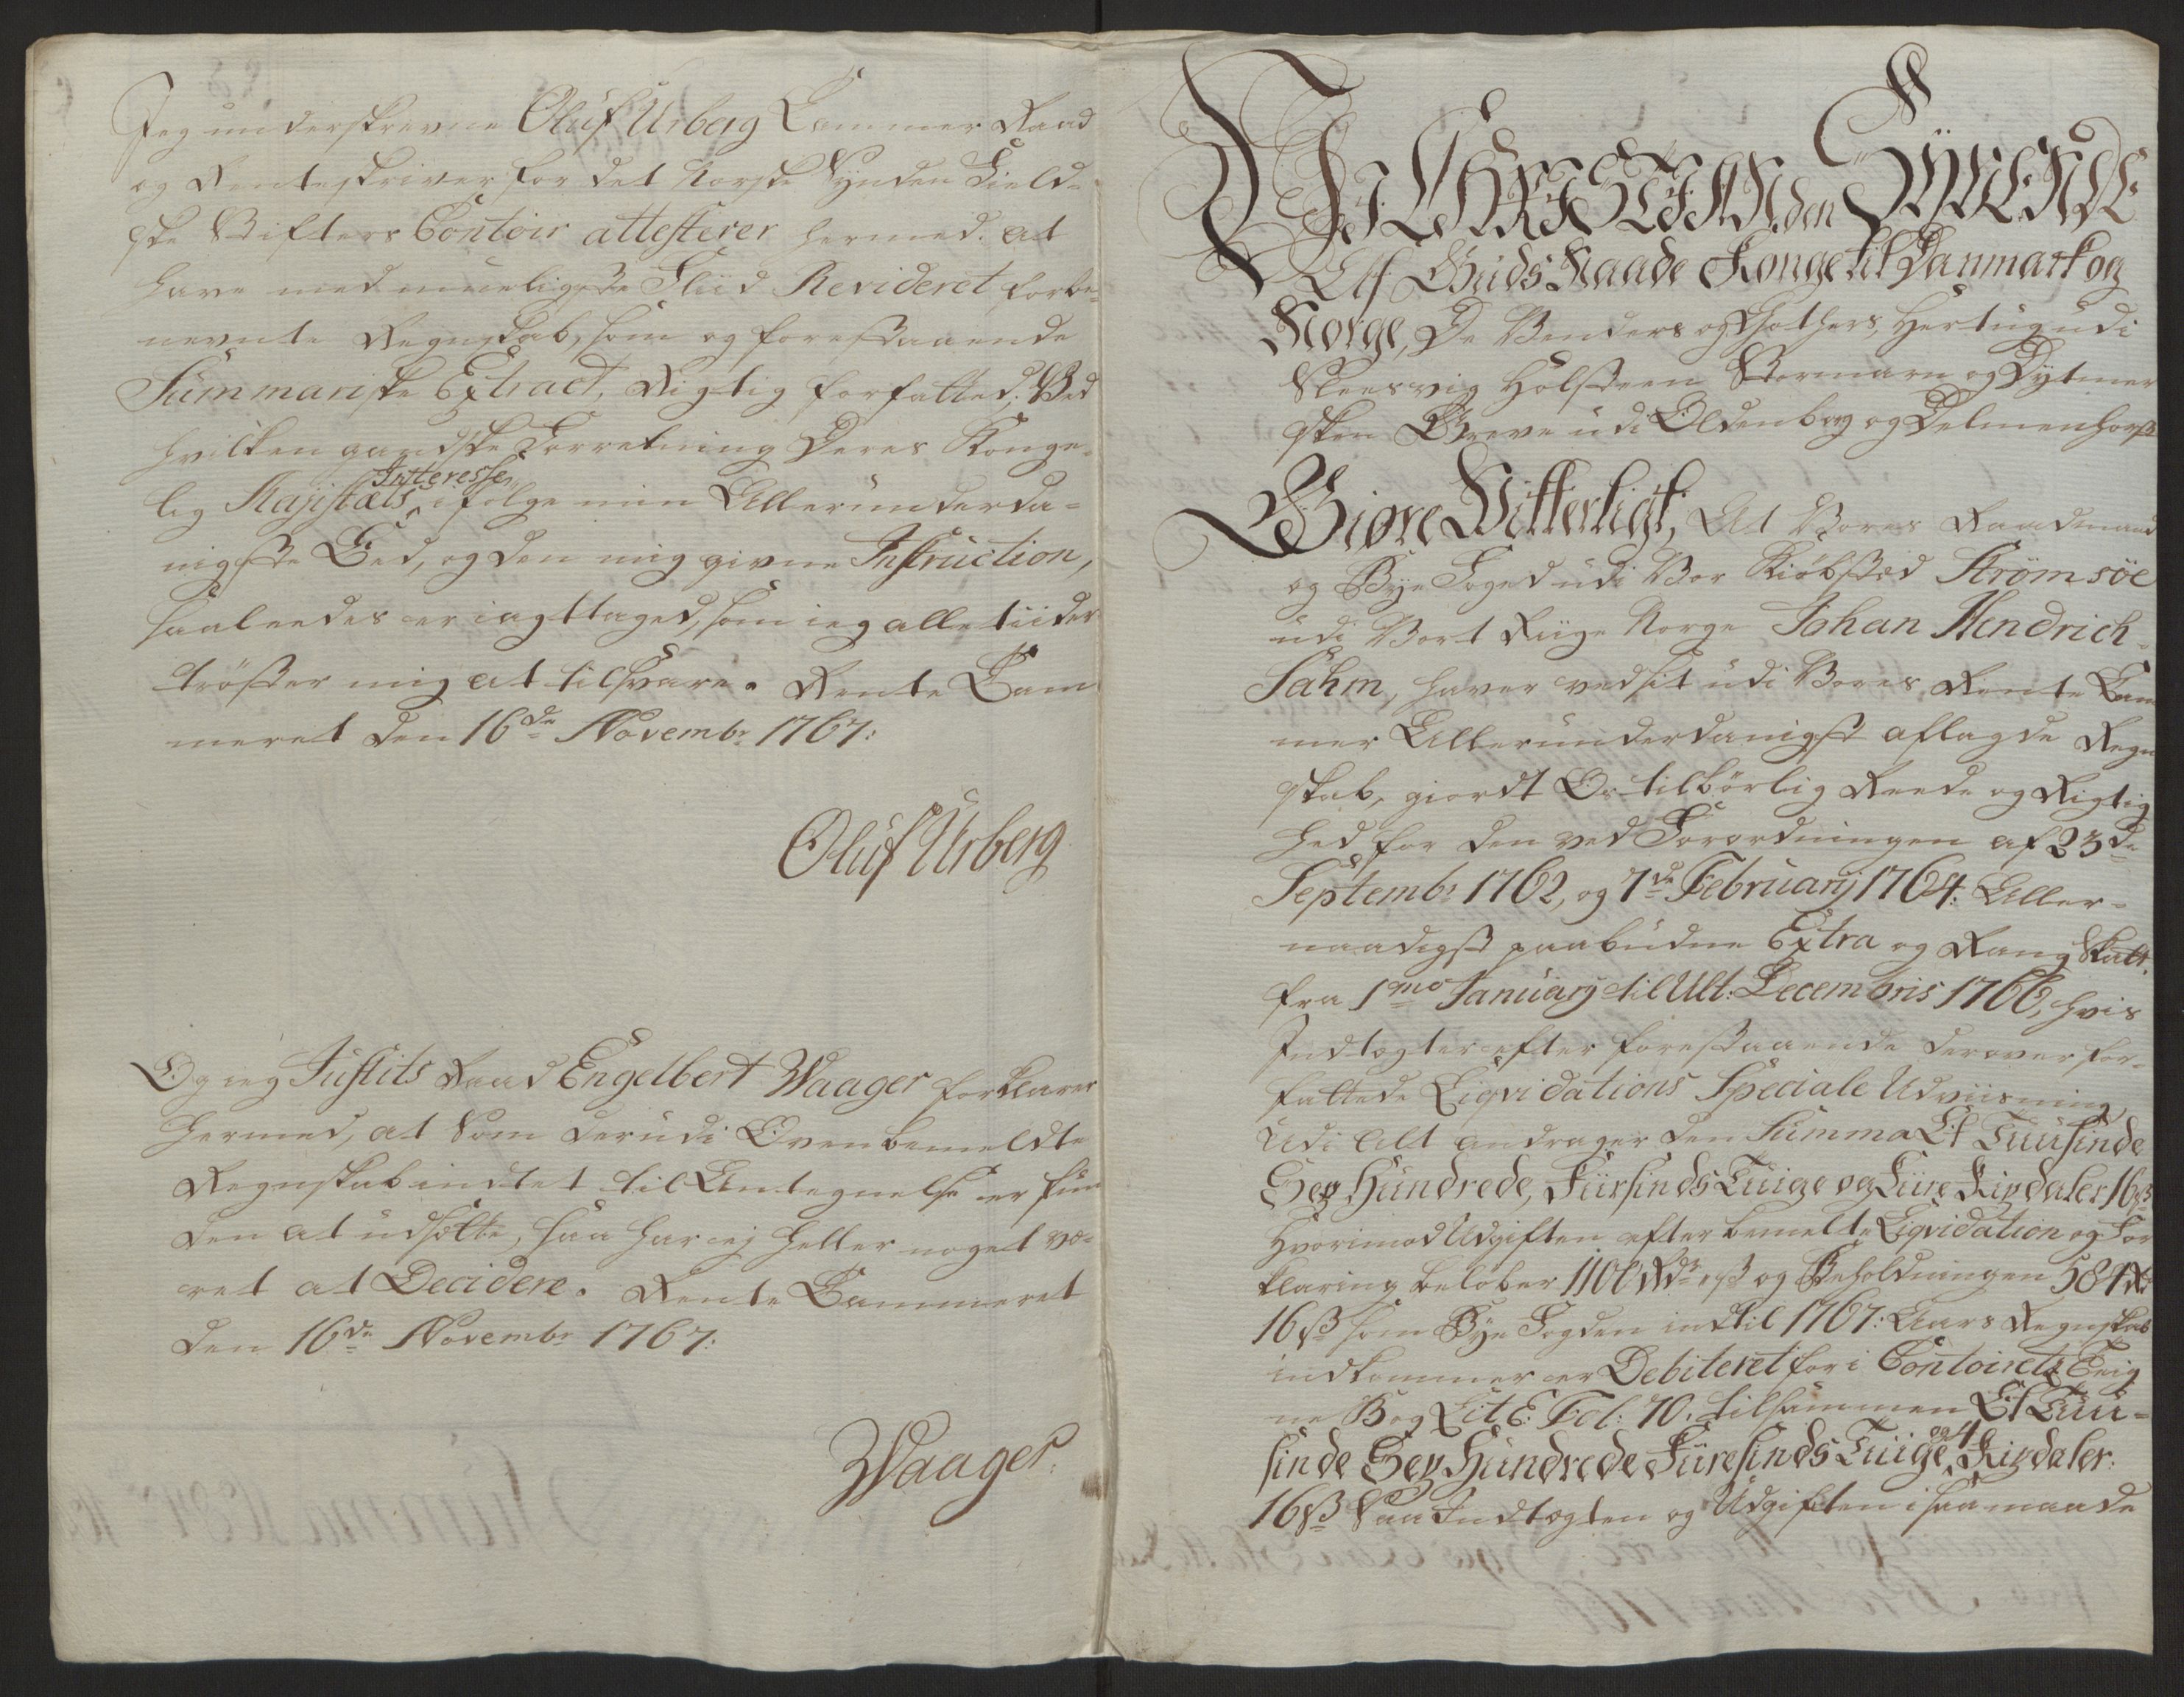 Jeg underskrevne Oluf Urberg Cammer Raad
og Renteskriver for det Norske Synden Field-
ske Stifters Contoir attesterer hermed. at
have med mueligste Fliid Revideret forbe-
nevnte Regnskab, som og forestaaende
Summariske Extract, Rigtig forfatted; Ved
hvilken gandske Forretning Deres Konge-
lig Majestæts Interesse, i følge min Allerunderda-
nigste Eed, og den mig givne Instruction,
saaleedes er iagttaged, som ieg alle tiider
trøster mig at tilsvare. Rente Cam
meret den 16de Novembr 1767:
Oluf Urberg
Og ieg Justits Raad Engelbert Waager forklarer
hermed, at Som derudi Ovenbemeldte
Regnskab indtet til Antegnelse er fun
den at udsætte, saa har ej heller noget væ-
ret at Decidere. Rente Cammeret
den 16de Novembr 1767:
Waager.
Vi CHRISTIAN den SYVENDE
Af Guds Naade Konge til Danmark og
Norge, De Venders og Gothers, Hertug udi
Sleesvig Holsteen Stormarn og Dytmer
sken Greve udi Oldenborg og Delmenhorst
Giøre Vitterligt, At Vores Raadmand
og Bye Foged udi Vor Kiøbsted Strømsøe
udi Vort Riige Norge Johan Hendrich
Sahm, haver ved sit udi Vores Rente Cam
mer Allerunderdanigst aflagde Regn
skab, giordt Os tilbørlig Reede og Rigtig
hed for den ved Forordningen af 23de
Septembr 1762, og 7de February 1764: Aller-
naadigst paabudne Extra og Rang Skatt.
fra 1mo January til Ult: Decembris 1766, hvis
Indtægter efter forestaaende derover for-
fattede Liqvidations Speciale Udviisning
Udi Alt andrager den Summa Et Tuusinde
Sex Hundrede, Fiirsinds Tiuge og Fiire Rixdaler 16 s
Hvorimod Udgiften efter bemelte Liqvidation og For
klaring beløber 1100 Rdr "s og Beholdningen 584 Rd
16 s som Bye Fogden ind til 1767: Aars Regnskab
indkommer er Debiteret for i Contoirets Eeig
ne Bog Lit E: Fol: 70. tilsammen Et Tuu-
sinde Sex Hundrede Fiiresinds Tiuge og 4 Rixdaler.
16 s Saa Indtægten og Udgiften i saa maade